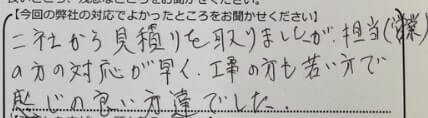 【今回の弊社の対応でよかったところをお聞かせください】
二社から見積りを取りましたが、担当(営業)
の方の対応が早く、工事の方も若い方で
感じの良い方達でした。